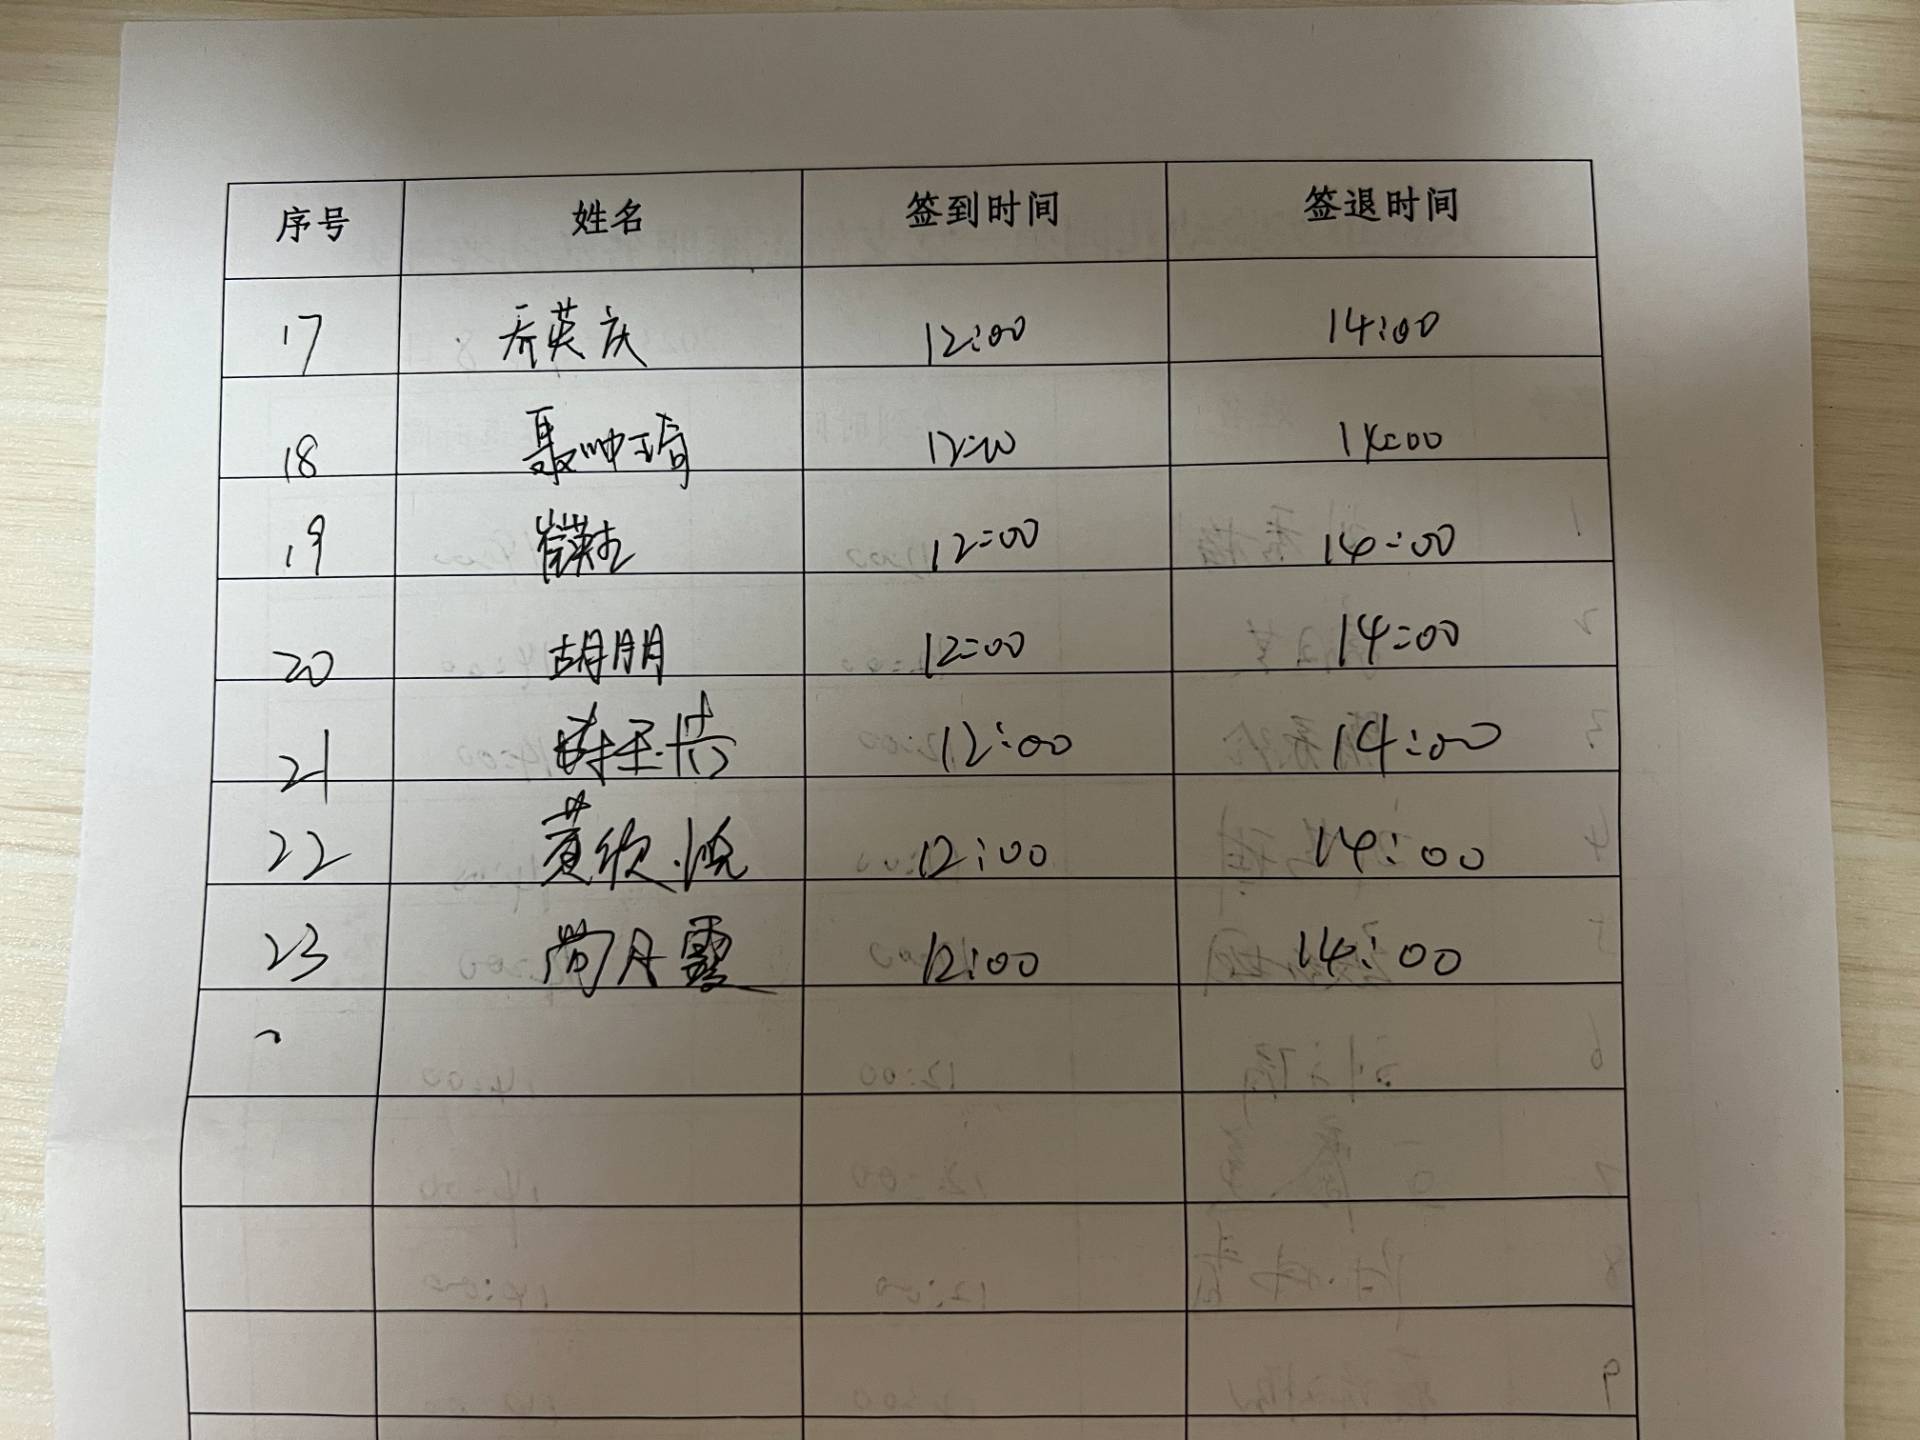 序号 姓名 签到时间 签退时间
17 乔英庆 12:00 14:00
18 聂帅琦 12:00 14:00
19 12:00 14:00
20 胡朋 12:00 14:00
21 12:00 14:00
22 黄欣悦 12:00 14:00
23 尚月霞 12:00 14:00